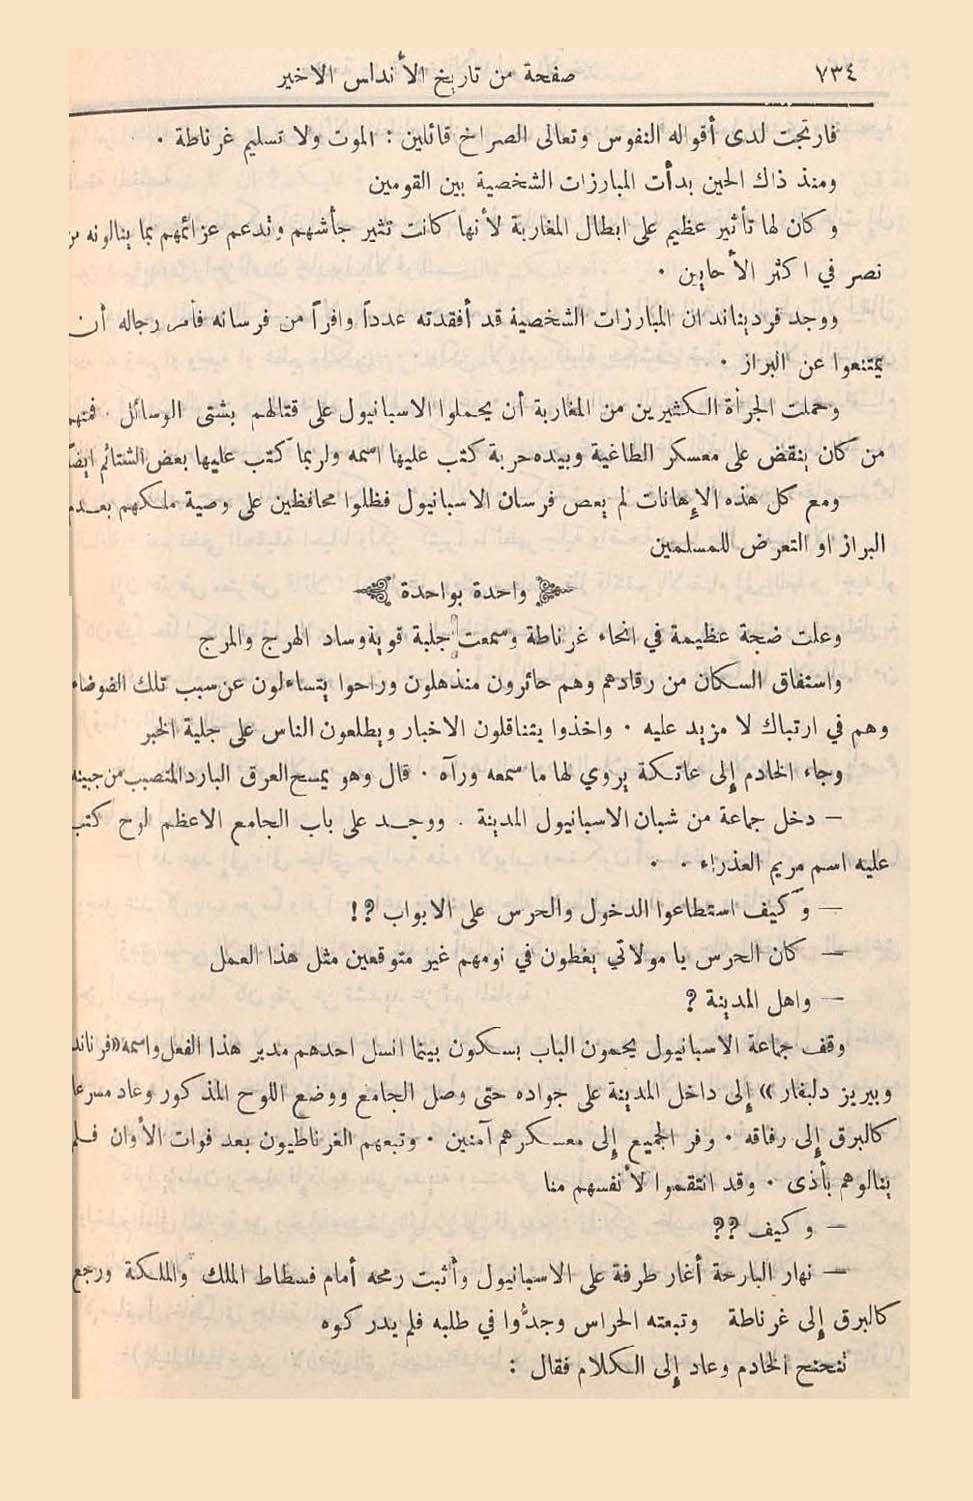 ٧٣٤
صفحة من تاريخ الأندلس الاخير
فارتجت لدى أقواله النفوس وتعالى الصراخ قائلين : الموت ولا تسليم غرناطة .
ومنذ ذاك الحين بدأت المبارزات الشخصية بين القومين
وكان لها تأثير عظيم على ابطال المغاربة لأنها كانت تثير جأشهم وتدعم عزائمهم بما ينالونه من
نصر في اكثر الأحايين .
ووجد فرديناند ان المبارزات الشخصية قد أفقدته عدداً وافراً من فرسانه فأمر رجاله أن
يمتنعوا عن البراز .
وحملت الجرأة الكثيرين من المغاربة أن يحملوا الاسبانيول على قتالهم بشتى الوسائل . فمنهم
من كان ينقض على معسكر الطاغية وبيده حربة كتب عليها اسمه ولربما كتب عليها بعض الشتائم ايضاً
ومع كل هذه الإهانات لم يعص فرسان الاسبانيول فظلوا محافظين على وصية ملكهم بعدم
البراز او التعرض للمسلمين
واحدة بواحدة
وعلت ضجة عظيمة في انحاء غرناطة وسمعت جلبة قوية وساد الهرج والمرج
واستفاق السكان من رقادهم وهم حائرون منذهلون وراحوا يتساءلون عن سبب تلك الضوضاء
وهم في ارتباك لا مزيد عليه . واخذوا يتناقلون الاخبار ويطلعون الناس على جلية الخبر
وجاء الخادم إلى عاتكة يروي لها ما سمعه ورآه . قال وهو يمسح العرق البارد المتصبب من جبينه
— دخل جماعة من شبان الاسبانيول المدينة . ووجد على باب الجامع الاعظم لوح كتب
عليه اسم مريم العذراء . .
— وكيف استطاعوا الدخول والحرس على الابواب ؟!
— كان الحرس يا مولاتي يغطون في نومهم غير متوقعين مثل هذا العمل
— واهل المدينة ؟
وقف جماعة الاسبانيول يحمون الباب بسكون بينما انسل احدهم مدير هذا الفعل واسمه «فرناند
وبيريز دلبغار » إلى داخل المدينة على جواده حتى وصل الجامع ووضع اللوح المذكور وعاد مسرعا
كالبرق إلى رفاقه . وفر الجميع إلى معسكرهم آمنين . وتبعهم الغرناطيون بعد فوات الأوان فلم
ينالوهم بأذى . وقد انتقموا لأنفسهم منا
— وكيف ؟؟
— نهار البارحة أغار طرفة على الاسبانيول وأثبت رمحه أمام فسطاط الملك والملكة ورجع
كالبرق إلى غرناطة وتبعته الحراس وجدُّوا في طلبه فلم يدركوه
تنحنح الخادم وعاد إلى الكلام فقال :